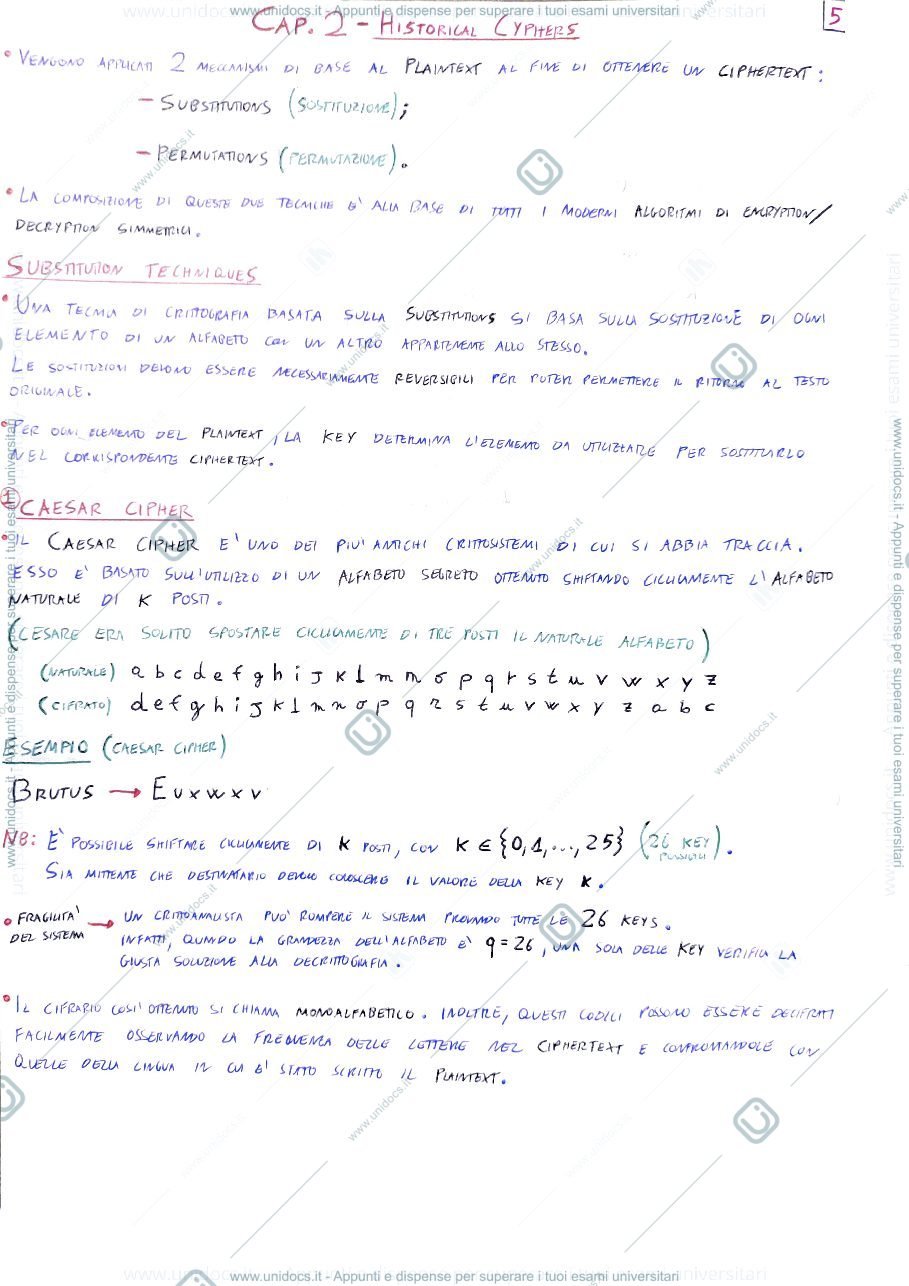 www.unidocs.it - Appunti e dispense per superare i tuoi esami universitari
CAP. 2 - HISTORICAL CYPHERS
5
• VENGONO APPLICATI 2 MECCANISMI DI BASE AL PLAINTEXT AL FINE DI OTTENERE UN CIPHERTEXT:
- SUBSTITUTIONS (SOSTITUZIONE);
- PERMUTATIONS (PERMUTAZIONE).
• LA COMPOSIZIONE DI QUESTE DUE TECNICHE E' ALLA BASE DI TUTTI I MODERNI ALGORITMI DI ENCRYPTION/
DECRYPTION SIMMETRICI.
SUBSTITUTION TECHNIQUES
• UNA TECNICA DI CRITTOGRAFIA BASATA SULLA SUBSTITUTIONS SI BASA SULLA SOSTITUZIONE DI OGNI
ELEMENTO DI UN ALFABETO CON UN ALTRO APPARTENENTE ALLO STESSO.
LE SOSTITUZIONI DEVONO ESSERE NECESSARIAMENTE REVERSIBILI PER POTER PERMETTERE IL RITORNO AL TESTO
ORIGINALE.
• PER OGNI ELEMENTO DEL PLAINTEXT, LA KEY DETERMINA L'ELEMENTO DA UTILIZZARE PER SOSTITUIRLO
NEL CORRISPONDENTE CIPHERTEXT.
① CAESAR CIPHER
• IL CAESAR CIPHER E' UNO DEI PIU' ANTICHI CRITTOSISTEMI DI CUI SI ABBIA TRACCIA.
ESSO E' BASATO SULL'UTILIZZO DI UN ALFABETO SEGRETO OTTENUTO SHIFTANDO CICLICAMENTE L'ALFABETO
NATURALE DI K POSTI.
(CESARE ERA SOLITO SPOSTARE CICLICAMENTE DI TRE POSTI IL NATURALE ALFABETO)
(NATURALE) a b c d e f g h i j k l m n o p q r s t u v w x y z
(CIFRATO) d e f g h i j k l m n o p q r s t u v w x y z a b c
ESEMPIO (CAESAR CIPHER)
BRUTUS → Euxwxv
NB: E' POSSIBILE SHIFTARE CICLICAMENTE DI K POSTI, CON K ∈ {0,1,...,25} (26 KEY POSSIBILI).
SIA MITTENTE CHE DESTINATARIO DEVONO CONOSCERE IL VALORE DELLA KEY K.
• FRAGILITA' DEL SISTEMA → UN CRITTOANALISTA PUO' ROMPERE IL SISTEMA PROVANDO TUTTE LE 26 KEYS.
INFATTI, QUANDO LA GRANDEZZA DELL'ALFABETO E' q=26, UNA SOLA DELLE KEY VERIFICA LA
GIUSTA SOLUZIONE ALLA DECRITTOGRAFIA.
• IL CIFRARIO COSI' OTTENUTO SI CHIAMA MONOALFABETICO. INOLTRE, QUESTI CODICI POSSONO ESSERE DECIFRATI
FACILMENTE OSSERVANDO LA FREQUENZA DELLE LETTERE NEL CIPHERTEXT E CONFRONTANDOLE CON
QUELLE DELLA LINGUA IN CUI E' STATO SCRITTO IL PLAINTEXT.
www.unidocs.it - Appunti e dispense per superare i tuoi esami universitari